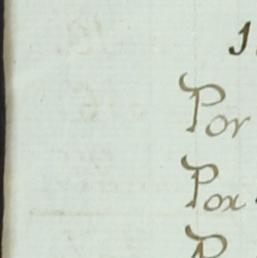 1
Por
Pox
P